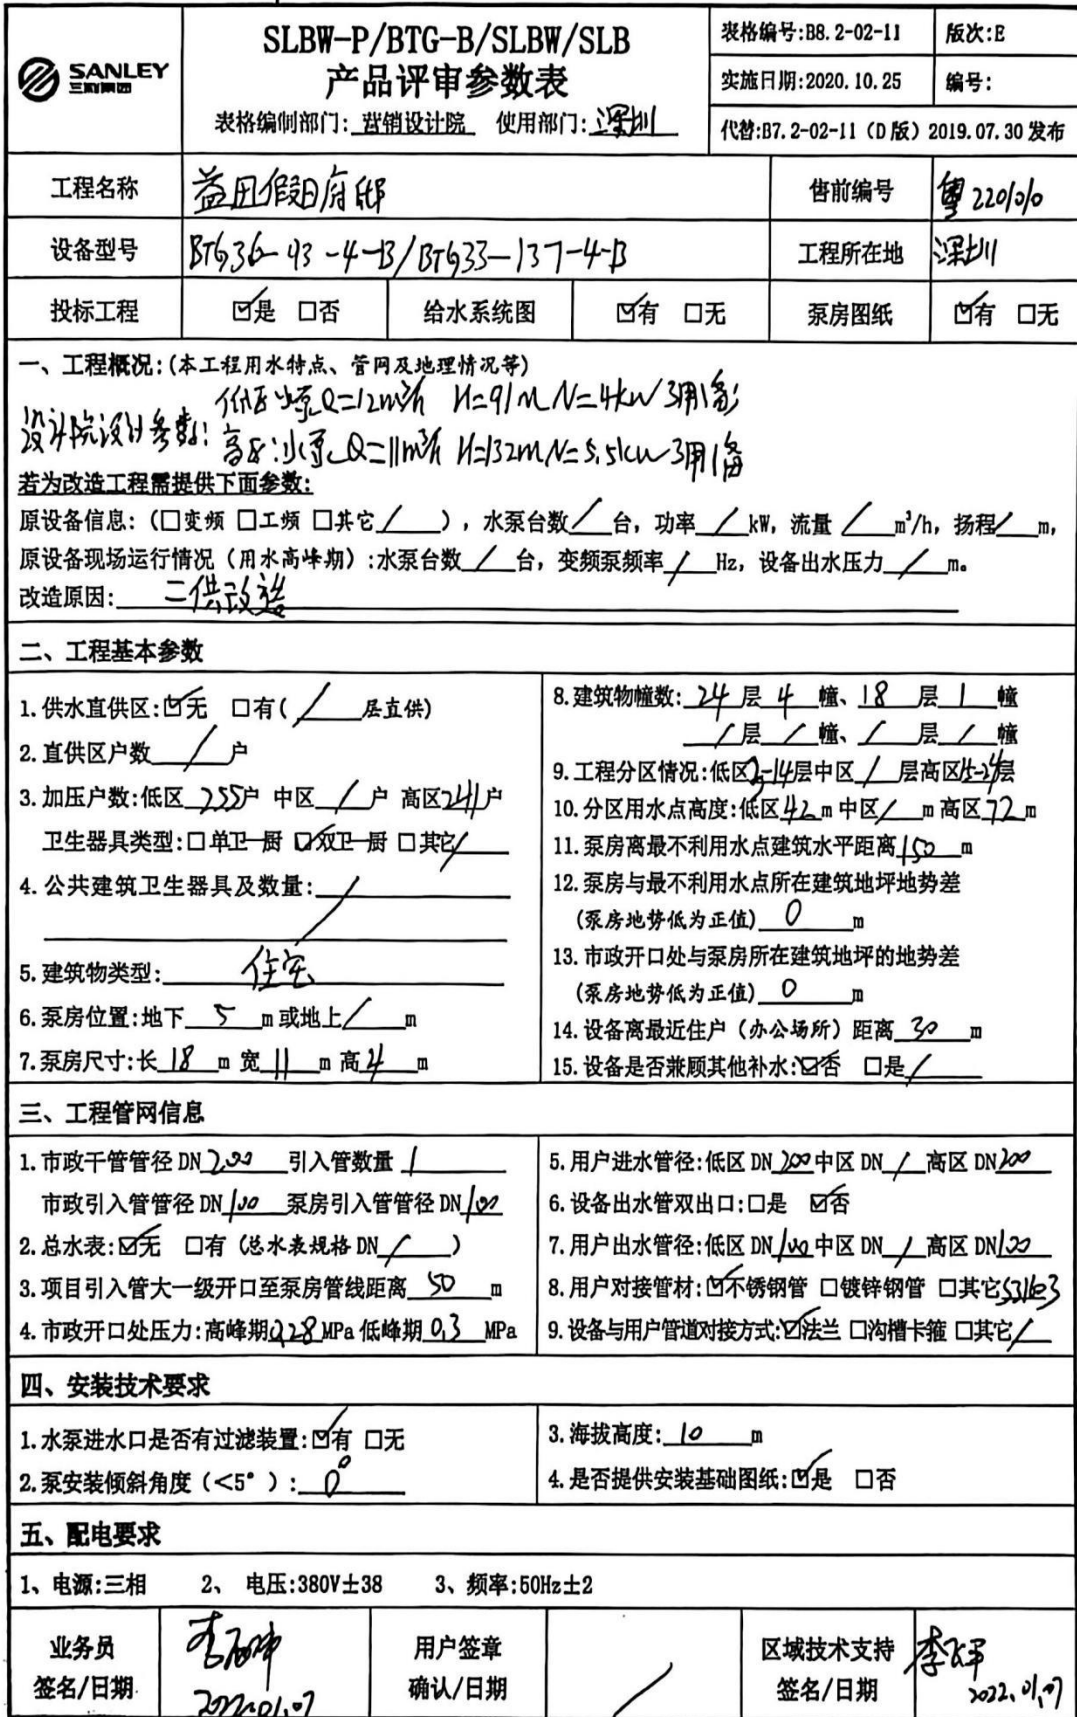 SANLEY
三利集团
SLBW-P/BTG-B/SLBW/SLB
产品评审参数表
表格编制部门: 营销设计院 使用部门: 深圳
表格编号:B8.2-02-11 版次:E
实施日期:2020.10.25 编号:
代替:B7.2-02-11 (D版) 2019.07.30 发布
工程名称 益田假日府邸 售前编号 粤2201010
设备型号 BTG36-93-4-B/BTG33-137-4-B 工程所在地 深圳
投标工程 ☑是 □否 给水系统图 ☑有 □无 泵房图纸 ☑有 □无
一、工程概况:(本工程用水特点、管网及地理情况等)
设计院设计参数: 低区水泵Q=12m³/h H=91m N=4kw 3用1备;
高区:水泵Q=11m³/h H=132m N=5.5kw 3用1备
若为改造工程需提供下面参数:
原设备信息:(□变频 □工频 □其它 / ),水泵台数 / 台,功率 / kW,流量 / m³/h,扬程 / m,
原设备现场运行情况(用水高峰期):水泵台数 / 台,变频泵频率 / Hz,设备出水压力 / m。
改造原因: 二供改造
二、工程基本参数
1.供水直供区:☑无 □有( / 层直供)
2.直供区户数 / 户
3.加压户数:低区 255户 中区 / 户 高区241户
卫生器具类型:□单卫一厨 ☑双卫一厨 □其它/
4.公共建筑卫生器具及数量: /
5.建筑物类型: 住宅
6.泵房位置:地下 5 m或地上 / m
7.泵房尺寸:长 18 m 宽 11 m 高 4 m
8.建筑物幢数: 24 层 4 幢、18 层 1 幢
/ 层 / 幢、 / 层 / 幢
9.工程分区情况:低区2-14层中区 / 层高区15-24层
10.分区用水点高度:低区42m中区 / m高区72m
11.泵房离最不利用水点建筑水平距离150m
12.泵房与最不利用水点所在建筑地坪地势差
(泵房地势低为正值) 0 m
13.市政开口处与泵房所在建筑地坪的地势差
(泵房地势低为正值) 0 m
14.设备离最近住户(办公场所)距离 30 m
15.设备是否兼顾其他补水:☑否 □是 /
三、工程管网信息
1.市政干管管径DN 200 引入管数量 1
市政引入管管径DN 100 泵房引入管管径DN 100
2.总水表:☑无 □有(总水表规格DN / )
3.项目引入管大一级开口至泵房管线距离 50 m
4.市政开口处压力:高峰期0.28MPa 低峰期 0.3 MPa
5.用户进水管径:低区DN 200 中区DN / 高区DN200
6.设备出水管双出口:□是 ☑否
7.用户出水管径:低区DN 100 中区DN / 高区DN100
8.用户对接管材:☑不锈钢管 □镀锌钢管 □其它S31603
9.设备与用户管道对接方式:☑法兰 □沟槽卡箍 □其它 /
四、安装技术要求
1.水泵进水口是否有过滤装置:☑有 □无
2.泵安装倾斜角度(<5°): 0°
3.海拔高度: 10 m
4.是否提供安装基础图纸:☑是 □否
五、配电要求
1、电源:三相 2、 电压:380V±38 3、频率:50Hz±2
业务员
签名/日期 2022.01.07
用户签章
确认/日期 /
区域技术支持
签名/日期 2022.01.07